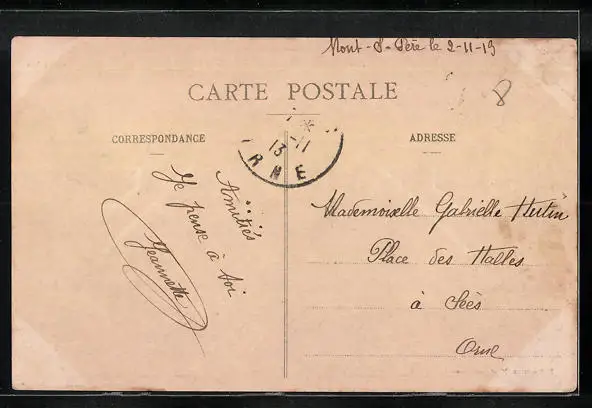 Mont-S-Père le 2-11-13
CARTE POSTALE
8
CORRESPONDANCE
ADRESSE
13 -11
RNE
Amitiés
Je pense à toi
Jeannette
Mademoiselle Gabrielle
Place des Halles
à Sées
Orne